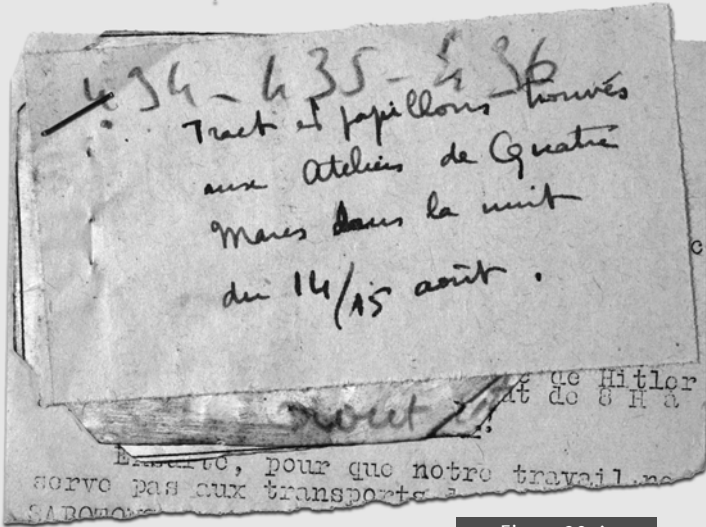 434-435-436
Tract et papillons trouvés
aux Ateliers de Quatre
Mares dans la nuit
du 14/15 août.
de Hitler
de 8 H à
août
Ensuite, pour que notre travail ne
serve pas aux transports
SABOTONS